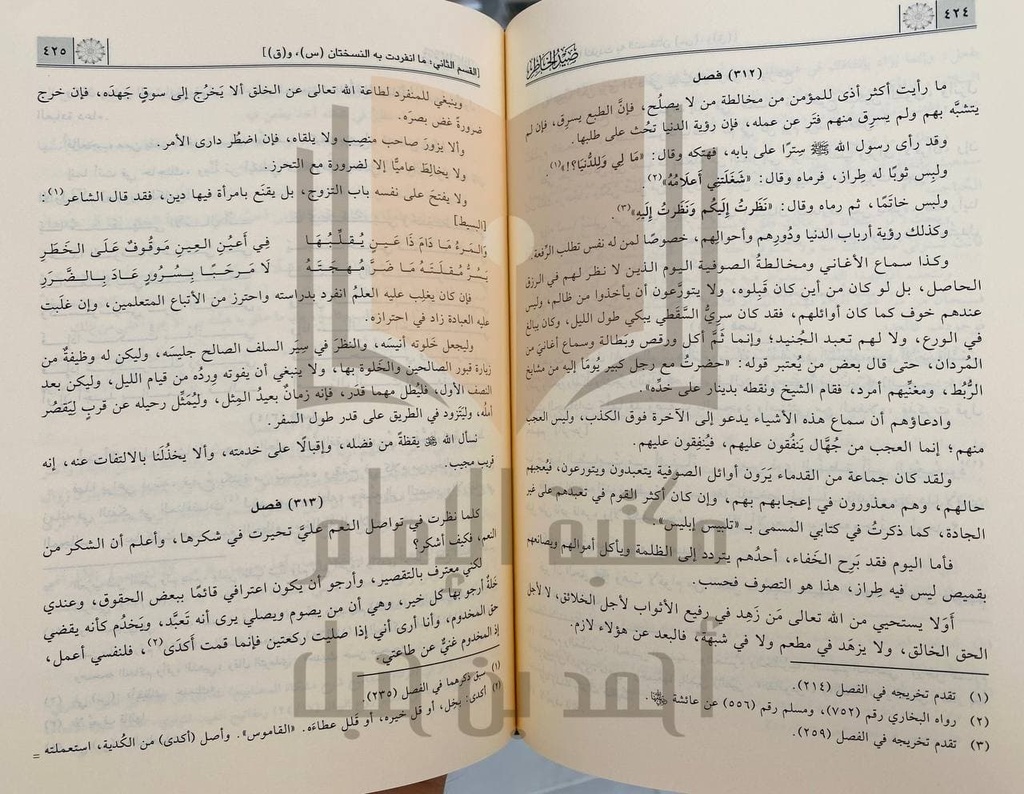 ٤٢٤
صَيْدُ الخَاطِرِ
(٣١٢) فصل
ما رأيت أكثر أذى للمؤمن من مخالطة من لا يصلُح، فإنَّ الطبع يسرِق، فإن لم
يتشبَّه بهم ولم يسرِق منهم فتَر عن عمله، فإن رؤية الدنيا تحُث على طلبها.
وقد رأى رسول الله ﷺ سِترًا على بابه، فهتكه وقال: «مَا لِي وَلِلدُّنيَا؟!»(١).
ولَبِس ثوبًا له طِراز، فرماه وقال: «شَغَلَتنِي أَعلَامُهُ»(٢).
ولبس خاتَمًا، ثم رماه وقال: «نَظَرتُ إِلَيكُم وَنَظَرتُ إِلَيهِ»(٣).
وكذلك رؤية أرباب الدنيا ودُورِهم وأحوالِهم، خصوصًا لمن له نفس تطلب الرِّفعة.
وكذا سماع الأغاني ومخالطةُ الصوفية اليوم الذين لا نظر لهم في الرزق
الحاصل، بل لو كان من أين كان قَبِلوه، ولا يتورَّعون أن يأخذوا من ظالم، وليس
عندهم خوف كما كان أوائلهم، فقد كان سريٌّ السَّقَطي يبكي طول الليل، وكان يبالغ
في الورع، ولا لهم تعبد الجُنيد؛ وإنما ثَمَّ أكل ورقص وبَطالة وسماع أغانيَ من
المُردان، حتى قال بعض من يُعتبر قوله: «حضرتُ مع رجل كبير يُومَأ إليه من مشايخ
الرُّبُط، ومغنِّيهم أمرد، فقام الشيخ ونقطه بدينار على خدِّه».
وادعاؤهم أن سماع هذه الأشياء يدعو إلى الآخرة فوق الكذب، وليس العجب
منهم؛ إنما العجب من جُهَّال يَنفُقون عليهم، فيُنفِقون عليهم.
ولقد كان جماعة من القدماء يَرَون أوائل الصوفية يتعبدون ويتورعون، فيُعجبهم
حالهم، وهم معذورون في إعجابهم بهم، وإن كان أكثر القوم في تعبدهم على غير
الجادة، كما ذكرتُ في كتابي المسمى بـ «تلبيس إبليس».
فأما اليوم فقد بَرِح الخَفاء، أحدُهم يتردد إلى الظلمة ويأكل أموالهم ويصانعهم
بقميص ليس فيه طِراز، هذا هو التصوف فحسب.
أَوَلا يستحيي من الله تعالى مَن زَهِد في رفيع الأثواب لأجل الخلائق، لا لأجل
الحق الخالق، ولا يزهَد في مطعم ولا في شبهة، فالبعد عن هؤلاء لازم.
(١) تقدم تخريجه في الفصل (٢١٤).
(٢) رواه البخاري رقم (٧٥٢)، ومسلم رقم (٥٥٦) عن عائشة
(٣) تقدم تخريجه في الفصل (٢٥٩).
[القسم الثاني: مَا انفردت به النسختان (س)، و(ق)]
٤٢٥
وينبغي للمنفرد لطاعة الله تعالى عن الخلق ألا يَخرُج إلى سوقٍ جَهدَه، فإن خرج
ضرورةً غض بصرَه.
وألا يزورَ صاحب منصِب ولا يلقاه، فإن اضطُر دارى الأمر.
ولا يخالِطَ عاميًّا إلا لضرورة مع التحرز.
ولا يفتحَ على نفسه باب التزوج، بل يقنَع بامرأة فيها دين، فقد قال الشاعر(١):
[البسيط]
وَالمَرءُ مَا دَامَ ذَا عَينٍ يُقَلِّبُهَا فِي أَعيُنِ العِينِ مَوقُوفٌ عَلَى الخَطَرِ
يَسُرُّ مُقلَتَهُ مَا ضَرَّ مُهجَتَهُ لَا مَرحَبًا بِسُرُورٍ عَادَ بِالضَّرَرِ
فإن كان يغلِب عليه العلمُ انفرد بدراسته واحترز من الأتباع المتعلمين، وإن غلَبت
عليه العبادة زاد في احترازه.
وليجعل خَلوته أنيسَه، والنظرَ في سِيَر السلف الصالح جليسَه، وليكن له وظيفةٌ من
زيارة قبور الصالحين والخَلوة بها، ولا ينبغي أن يفوته وِردُه من قيام الليل، وليكن بعد
النصف الأول، فليُطل مهما قدَر، فإنه زمانٌ بعيدُ المِثل، وليُمثِّل رحيله عن قربٍ لِيَقصُر
أملُه، وليَتَزود في الطريق على قدر طول السفر.
نسأل الله ﷻ يقظةً من فضله، وإقبالًا على خدمته، وألا يخذُلَنا بالالتفات عنه، إنه
قريب مجيب.
(٣١٣) فصل
كلما نظرت في تواصل النعم عليَّ تحيرت في شكرها، وأعلم أن الشكر من
النعم، فكيف أشكر؟
لكني معترف بالتقصير، وأرجو أن يكون اعترافي قائمًا ببعض الحقوق، وعندي
خَلةٌ أرجو بها كل خير، وهي أن من يصوم ويصلي يرى أنه تَعبَّد، ويَخدُم كأنه يقضي
حق المخدوم، وأنا أرى أني إذا صليت ركعتين فإنما قمت أَكدَى(٢)، فلنفسي أعمل،
إذ المخدوم غنيٌّ عن طاعتي.
(١) سبق ذكرهما في الفصل (٢٣٥).
(٢) أكدى: بخِل، أو قل خيره، أو قَلل عطاءَه. «القاموس». وأصل (أكدى) من الكُدية، استعملته =
مكتبة الإمام
أحمد بن حنبل